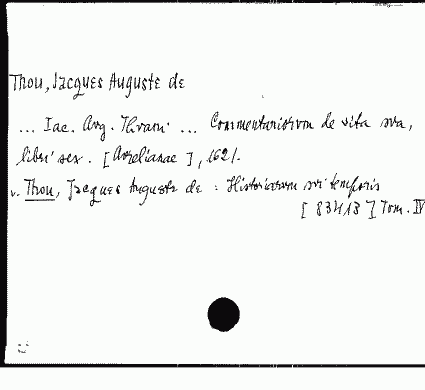 Thou, Jacques Auguste de
... Iac. Aug. Thuani ... Commentariorum de vita sua,
libri sex. [Aurelianae], 1621.
v. Thou, Jacques Auguste de : Historiarum sui temporis
[83413] Tom. IV